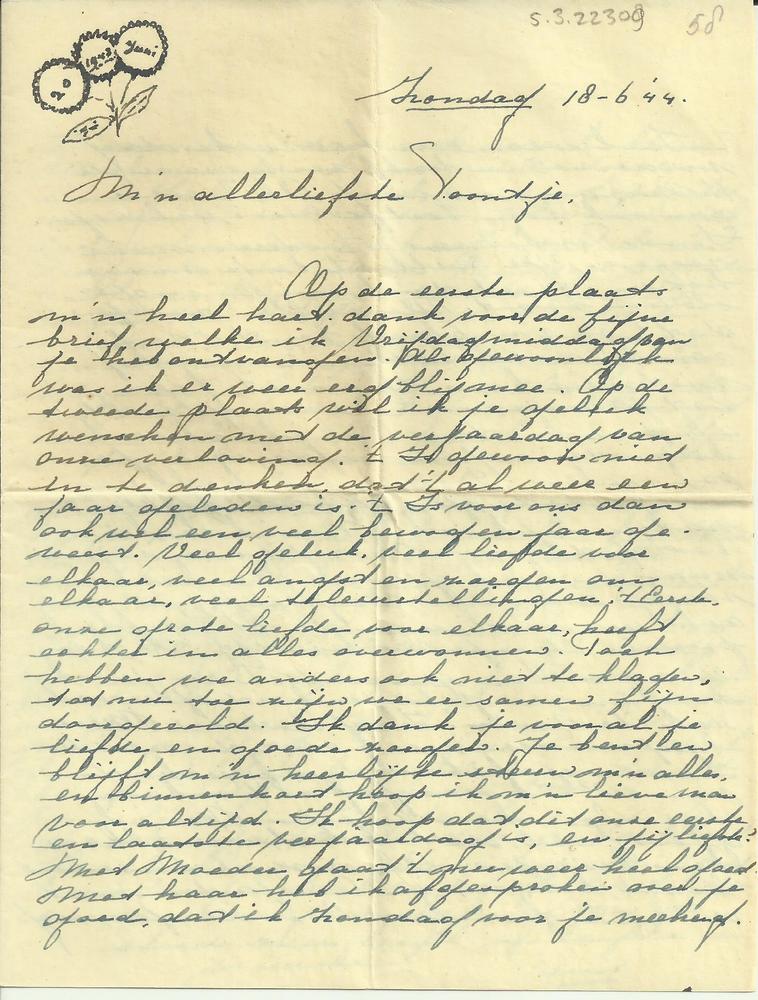 S.3.22309 58
20 1943 Juni
Zondag 18-6'44.
M'n allerliefste Toontje,
Op de eerste plaats
m'n heel hart. dank voor de fijne
brief welke ik Vrijdagmiddag van
je heb ontvangen. Als gewoonlijk
was ik er weer erg blij mee. Op de
tweede plaats wil ik je geluk
wenschen met de verjaardag van
onze verloving. 't Is gewoon niet
in te denken, dat 't al weer een
jaar geleden is. 't Is voor ons dan
ook wel een veel bewogen jaar ge-
weest. Veel geluk, veel liefde voor
elkaar, veel angst en zorgen om
elkaar, veel teleurstellingen. 't Eerste,
onze grote liefde voor elkaar, heeft
echter in alles overwonnen. Toch
hebben we anders ook niet te klagen,
tot nu toe zijn we er samen fijn
doorgerold. Ik dank je voor al je
liefde en goede zorgen. Je bent en
blijft m'n heerlijke steun m'n alles,
en binnenkort hoop ik m'n lieve man
voor altijd. Ik hoop dat dit onze eerste
en laatste verjaardag is, en jij liefste?
Met Moeder gaat 't nu weer heel goed.
Met haar heb ik afgesproken over je
goed, dat ik Zondag voor je meebreng.